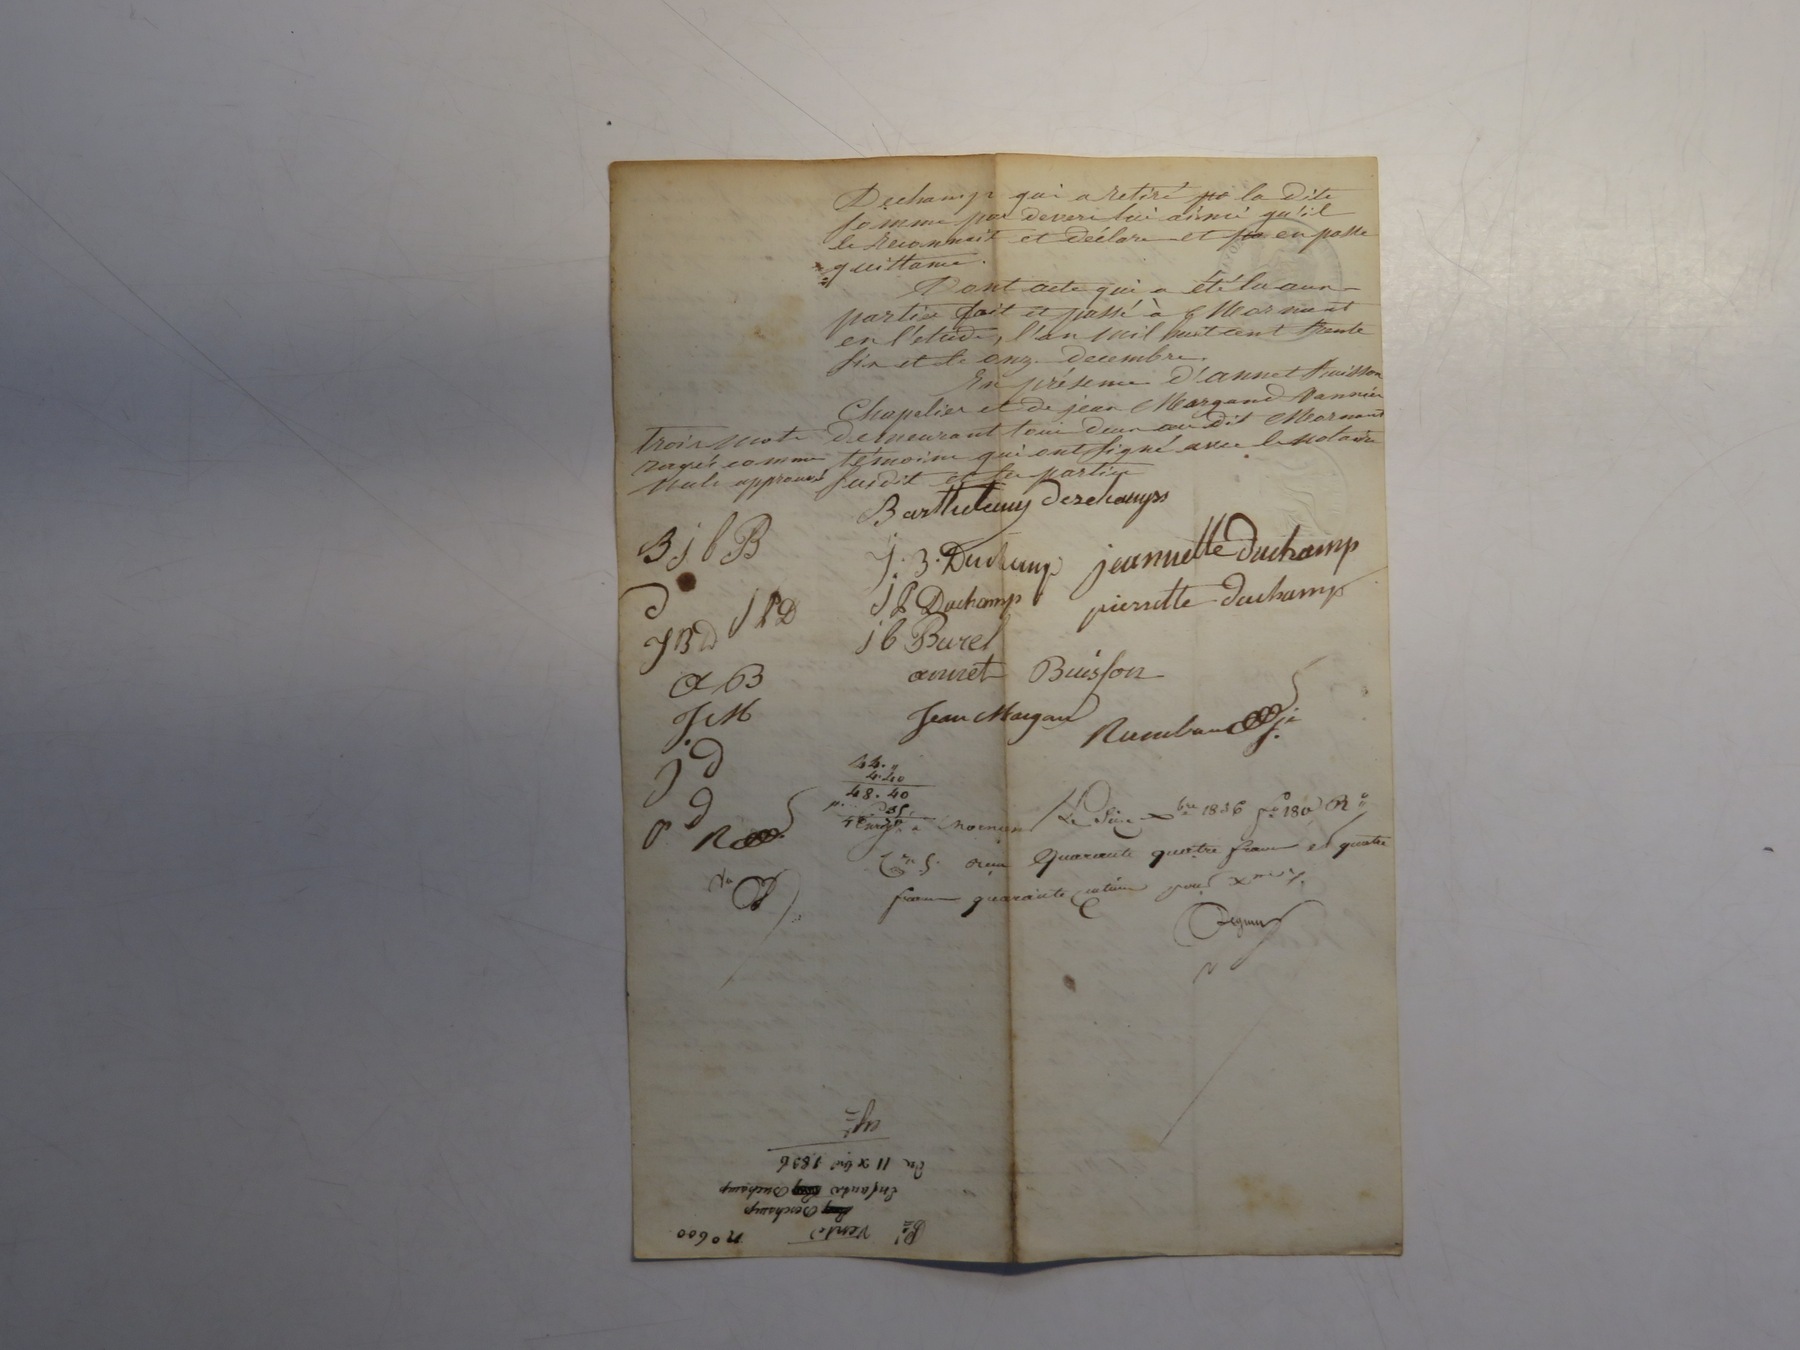 Dechamp qui a retiré pr la dite
somme par devers lui ainsi qu'il
le reconnait et déclare et en passe
quittance.
Dont acte qui a été lu aux
parties fait et passé à Mornant
en l'étude, l'an mil huit cent trente
six et le onze decembre.
En présence d'annet Buisson
Chapelier et de jean Margand Vannier
demeurant tous deux au dit Mornant
comme témoins qui ont signé avec le notaire
susdit et les parties
trois mots
rayés
nuls approuvés
Barthelemy dezchamps
B j b B
J. B. Duchamp jeannette duchamp
d
j P D
J P Duchamp pierrette duchamp
J B D
j b Burel
a B
annet Buisson
J. M
Jean Margand
j d
P d
44. "
4. 40
48. 40
Enregé à Mornant Le Seize Xbre 1836 fo 180 Ro
reçu Quarante quatre francs et quatre
francs quarante centimes pour Xme
no 600
Vente
Deschamp
Enfants Duchamp
Du 11 Xbre 1836